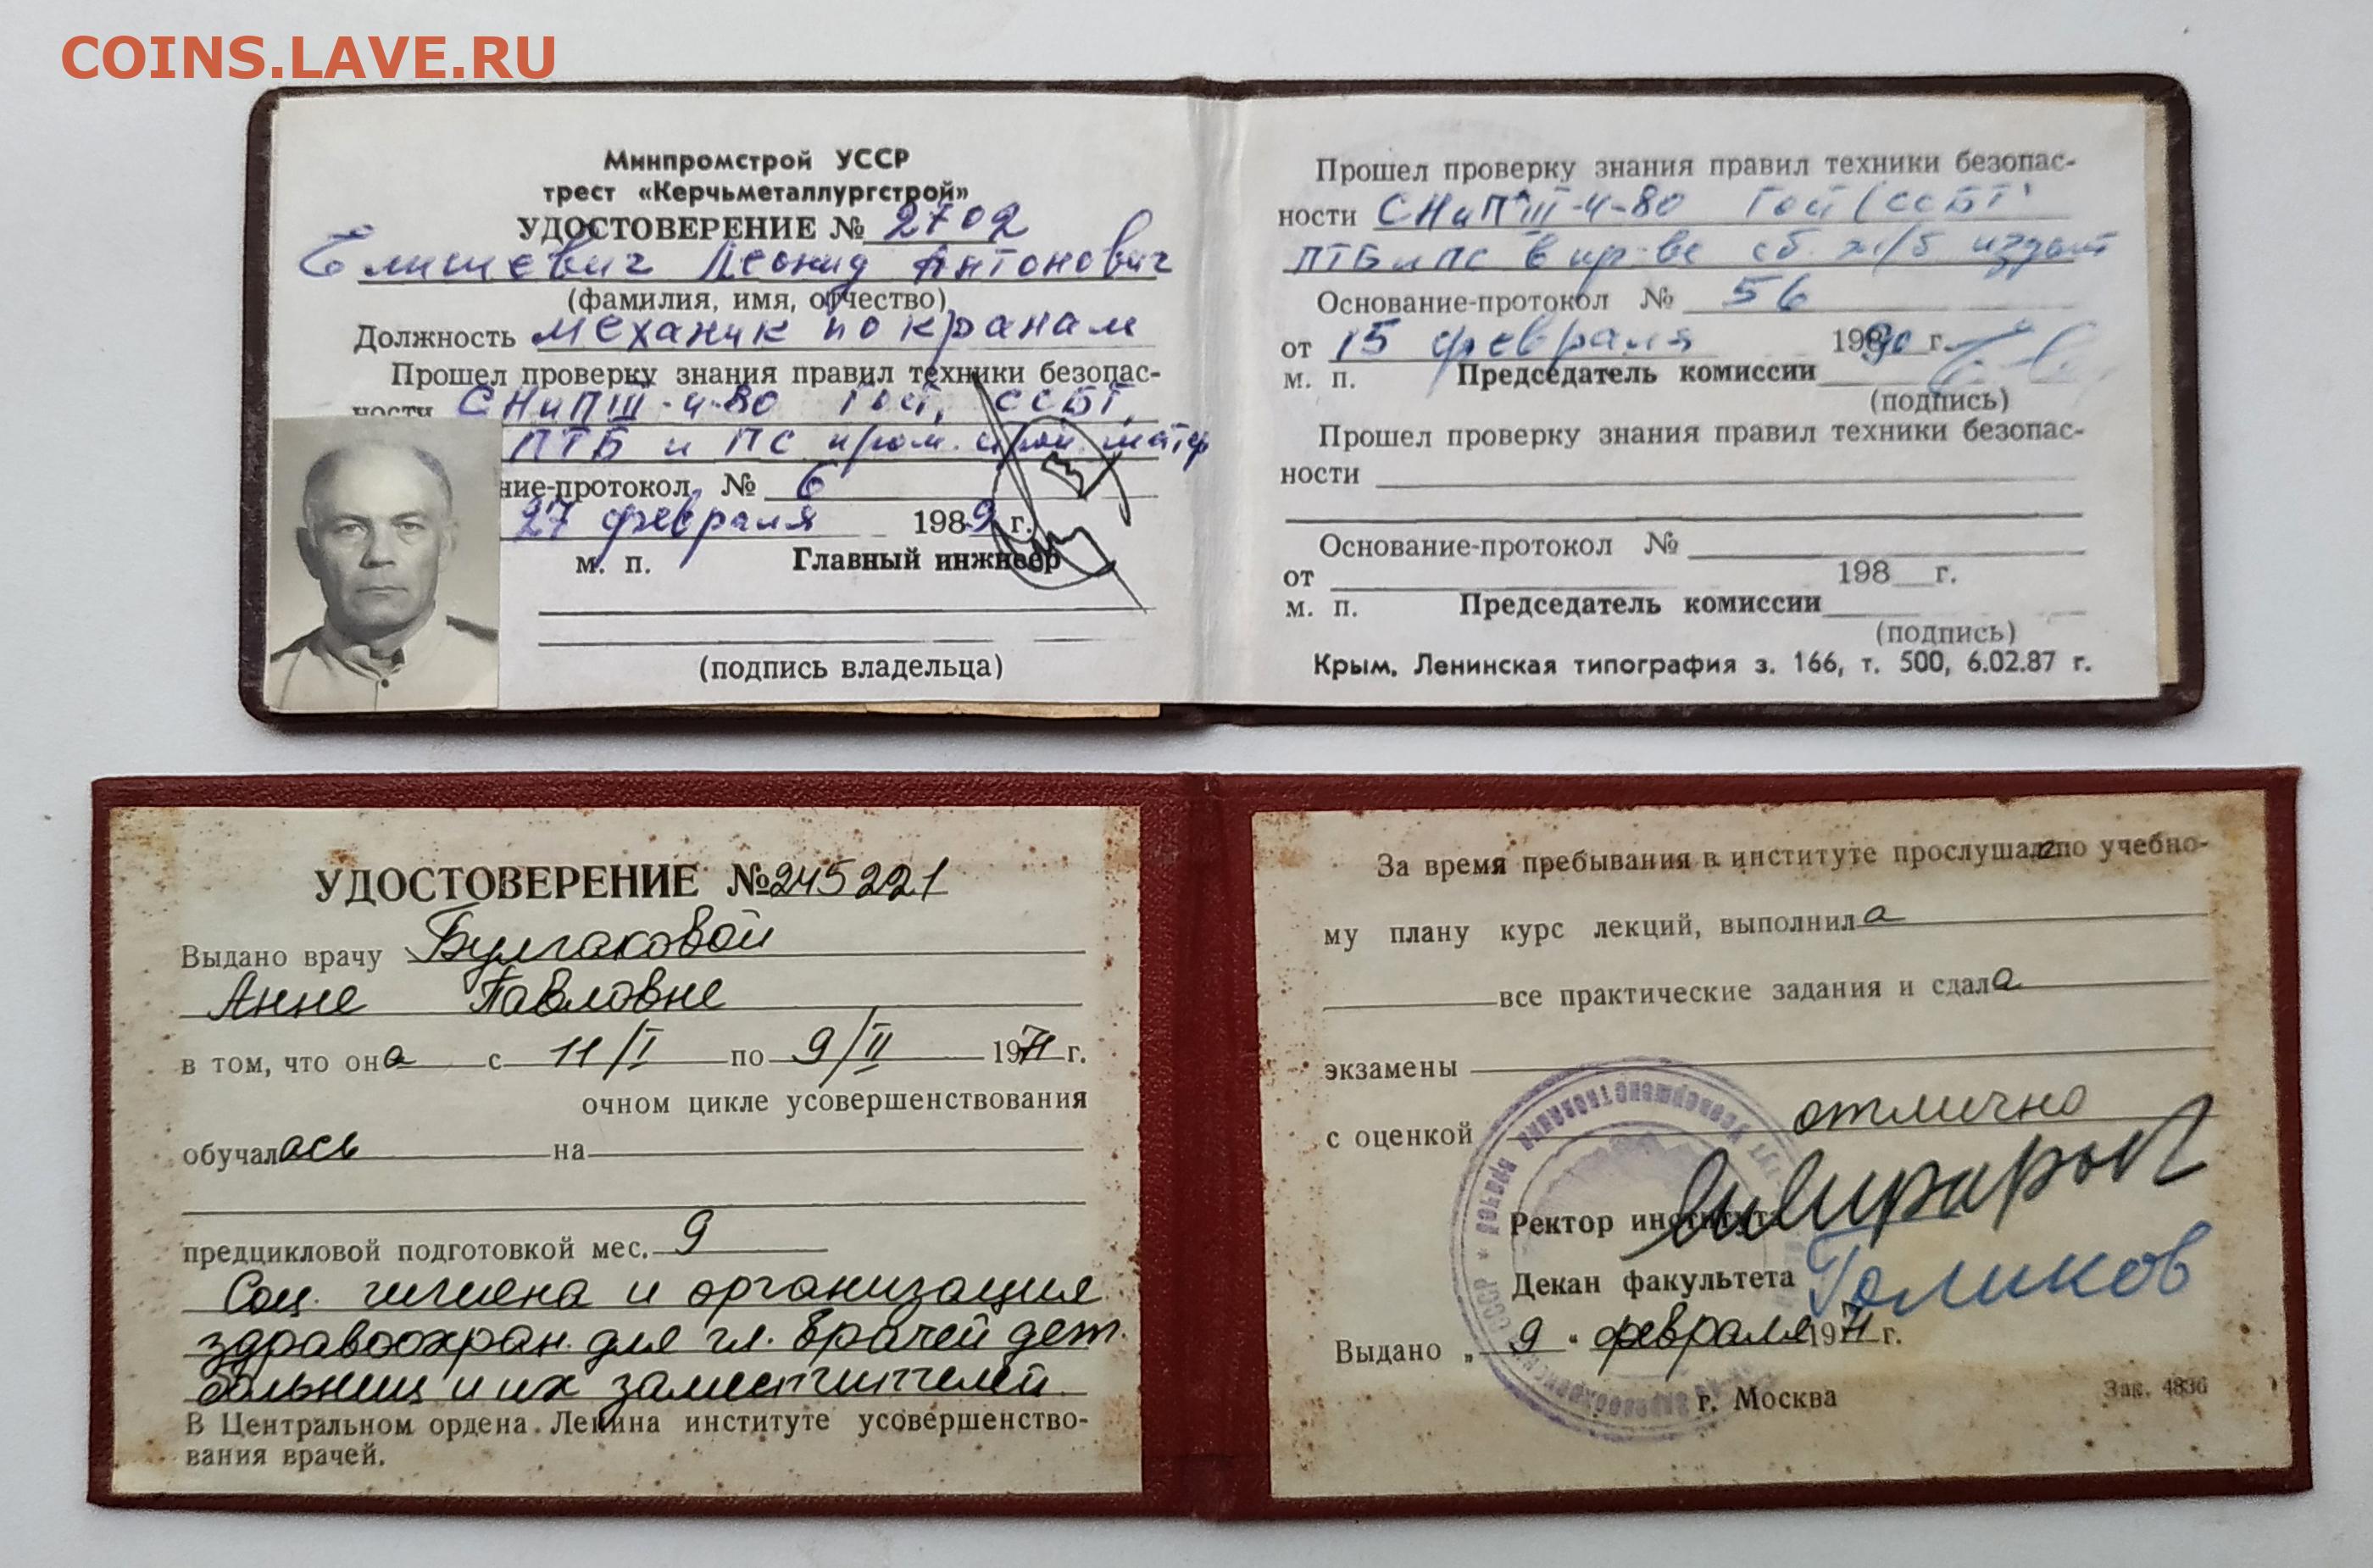 COINS.LAVE.RU
Минпромстрой УССР
трест «Керчьметаллургстрой»
УДОСТОВЕРЕНИЕ № 2702
Елишевич Леонид Антонович
(фамилия, имя, отчество)
Должность механик по кранам
Прошел проверку знания правил техники безопас-
ности СНиП III-4-80 Гост, ССБТ,
ПТБ и ПС пром. строй. матер
ние-протокол № 6
27 февраля 1989 г.
м. п. Главный инженер
(подпись владельца)
Прошел проверку знания правил техники безопас-
ности СНиП III-4-80 Гост ССБТ
ПТБ и ПС в пр-ве сб. ж/б издат
Основание-протокол № 56
от 15 февраля 19890 г.
м. п. Председатель комиссии
(подпись)
Прошел проверку знания правил техники безопас-
ности
Основание-протокол №
от 198 г.
м. п. Председатель комиссии
(подпись)
Крым, Ленинская типография з. 166, т. 500, 6.02.87 г.
УДОСТОВЕРЕНИЕ № 245221
Выдано врачу Булгаковой
Анне Павловне
в том, что она с 11/I по 9/II 1971 г.
очном цикле усовершенствования
обучалась на
предцикловой подготовкой мес. 9
Соц. гигиена и организация
здравоохран. для гл. врачей дет.
больниц и их заместителей
В Центральном ордена Ленина институте усовершенство-
вания врачей.
За время пребывания в институте прослушала по учебно-
му плану курс лекций, выполнила
все практические задания и сдала
экзамены
с оценкой отлично
Ректор института
Декан факультета Голиков
Выдано „ 9 " февраля 1971 г.
г. Москва
Зак. 4836